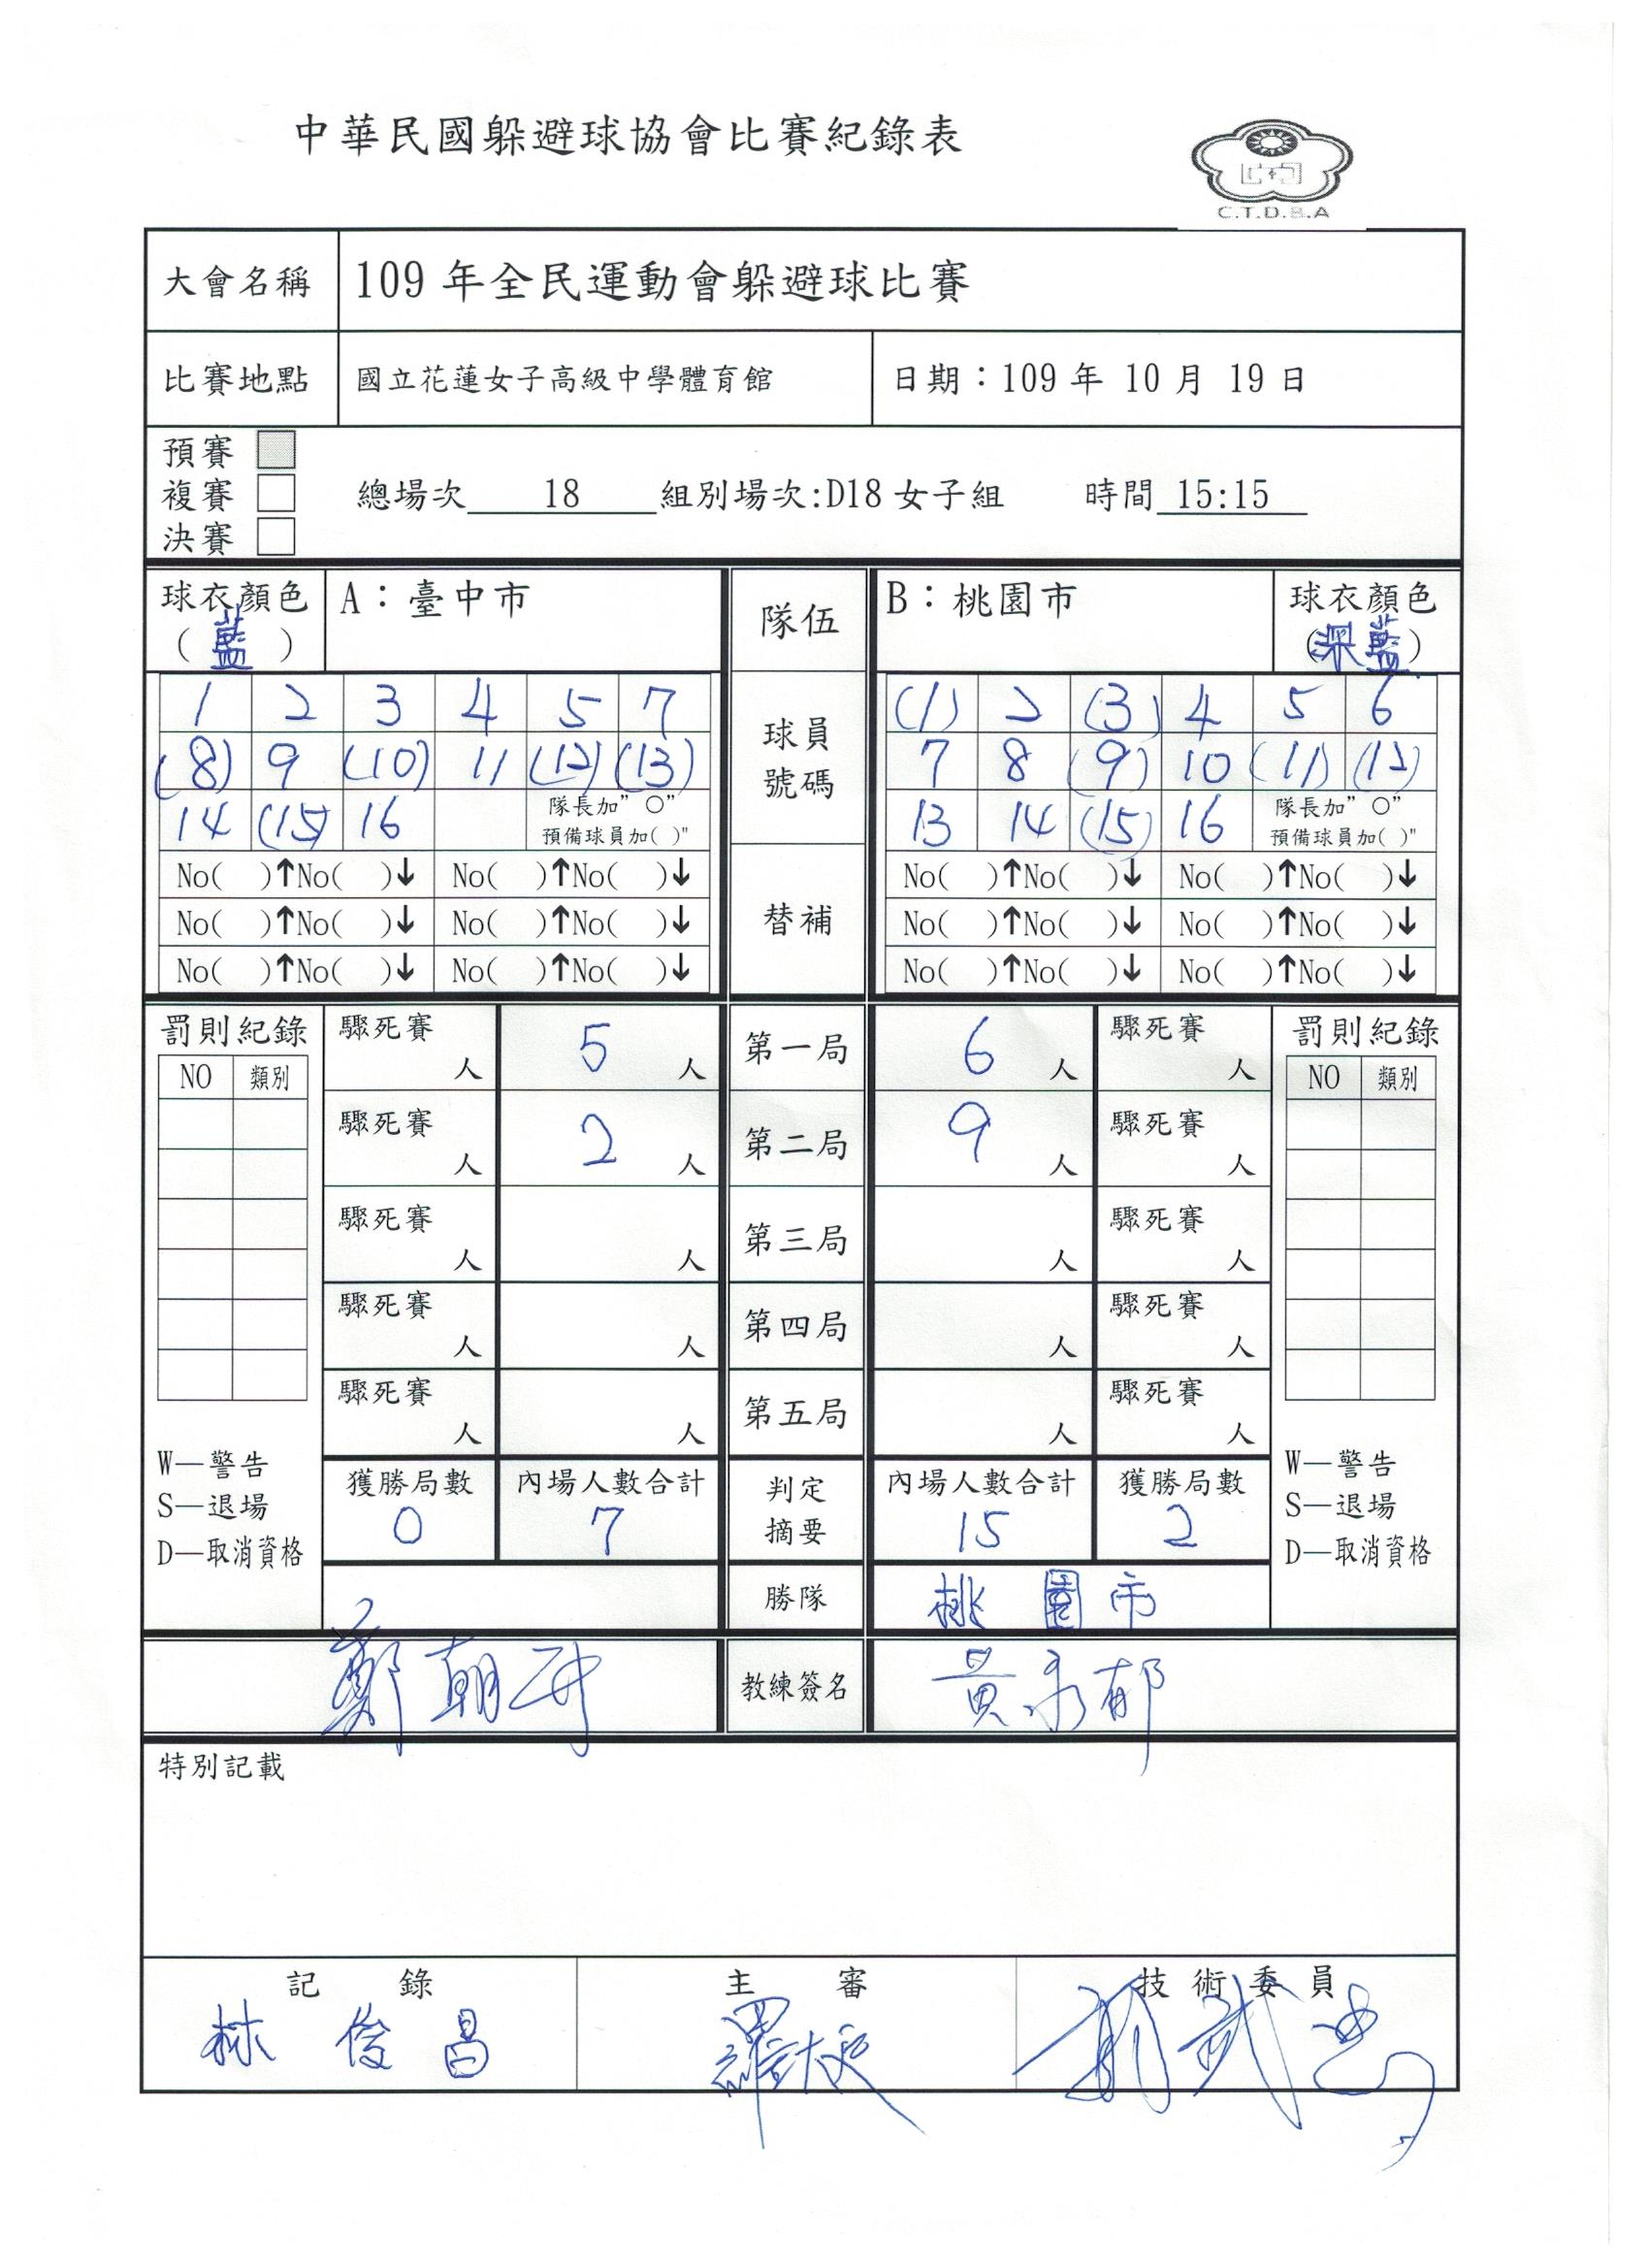 中華民國躲避球協會比賽紀錄表
C.T.D.B.A
大會名稱 109 年全民運動會躲避球比賽
比賽地點 國立花蓮女子高級中學體育館 日期：109 年 10 月 19 日
預賽
複賽 總場次 18 組別場次:D18 女子組 時間 15:15
決賽
球衣顏色 A：臺中市 隊伍 B：桃園市 球衣顏色
(藍) (深藍)
1 2 3 4 5 7 球員號碼 (1) 2 (3) 4 5 6
(8) 9 (10) 11 (12) (13) 7 8 (9) 10 (11) (12)
14 (15) 16 隊長加" ○" 預備球員加( )" 13 14 (15) 16 隊長加" ○" 預備球員加( )"
No( )↑No( )↓ No( )↑No( )↓ 替補 No( )↑No( )↓ No( )↑No( )↓
No( )↑No( )↓ No( )↑No( )↓ No( )↑No( )↓ No( )↑No( )↓
No( )↑No( )↓ No( )↑No( )↓ No( )↑No( )↓ No( )↑No( )↓
罰則紀錄 驟死賽 人 5 人 第一局 6 人 驟死賽 人 罰則紀錄
NO 類別 NO 類別
驟死賽 人 2 人 第二局 9 人 驟死賽 人
驟死賽 人 人 第三局 人 驟死賽 人
驟死賽 人 人 第四局 人 驟死賽 人
驟死賽 人 人 第五局 人 驟死賽 人
W—警告 W—警告
S—退場 S—退場
D—取消資格 D—取消資格
獲勝局數 內場人數合計 判定摘要 內場人數合計 獲勝局數
0 7 15 2
勝隊 桃園市
鄭朝 教練簽名 黃永郁
特別記載
記錄 主審 技術委員
林俊昌 羅